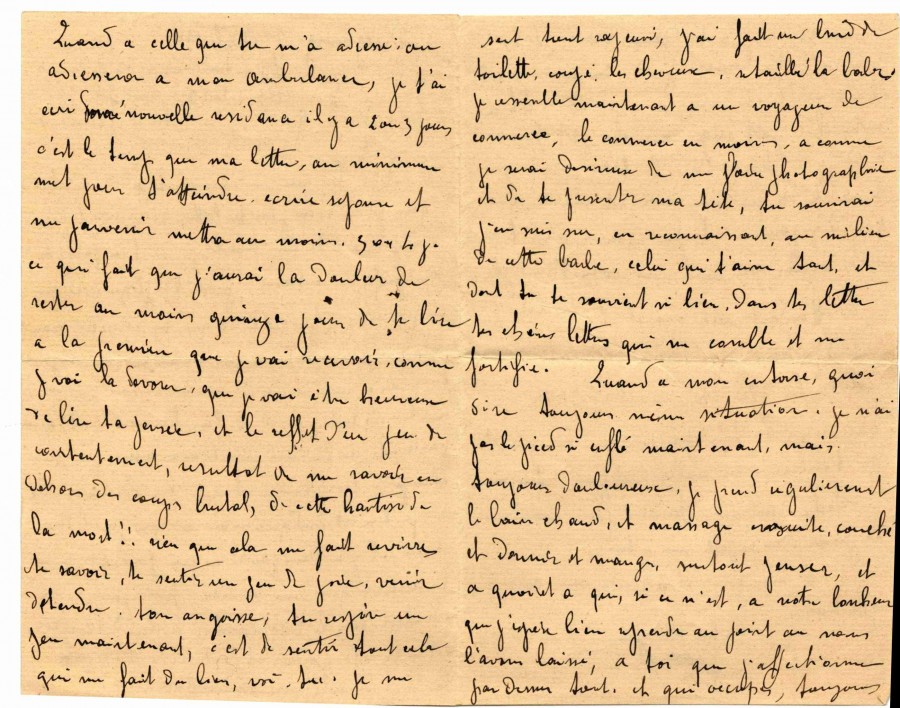 Quand a celle que tu m'a adressé ou
adressera a mon ambulance, je t'ai
ecri nouvelle residance il y a 2 ou 3 jours
c'est le temp que ma lettre, au minimum
met pour t'atteindre. ecrire reponse et
me parvenir mettra au moins. 3 ou 4 j.
ce qui fait que j'aurai la douleur de
rester au moins quinze jours de te lire
a la première que je vai recevoir, comme
j vai la devorer, que je vai être heureuse
de lire ta pensée, et le reffet d'un peu de
contentement, resultat de me savoir en
dehors des coups brutal, de cette hantise de
la mort!! rien que cela me fait revivre,
te savoir, te sentir un peu de joie, venir
detendre. ton angoisse, tu respire un
peu maintenant, c'est de sentir tout cela
qui me fait du bien, voi-tu. je me
sent tout rajeuni, j'ai fait un brid de
toilette, coupé, les cheveux, et taillé la barbe.
je ressemble maintenant a un voyageur de
commerce, le commerce en moins, a comme
je serai desireuse de me faire photographier
et de te presenter ma tête, tu sourirai
j'en suis sur, en reconnaissant, au milieu
de cette barbe, celui qui t'aime tant, et
dont tu te souvient si bien. dans tes lettre
tes chères lettres qui me comble et me
fortifie. Quand a mon entorse, quoi
dire toujours même situation. je n'ai
pas le pieed si enflé maintenant, mais
toujours douloureuse, je prend regulierement
le bain chaud, et massage ensuite, couché
et dormir et manger, surtout penser, et
a quoi et a qui, si ce n'est, a notre bonheur
que j'espère bien reprendre au point ou nous
l'avons laissé, a toi que j'affectionne
par dessus tout. et qui occupes, toujours